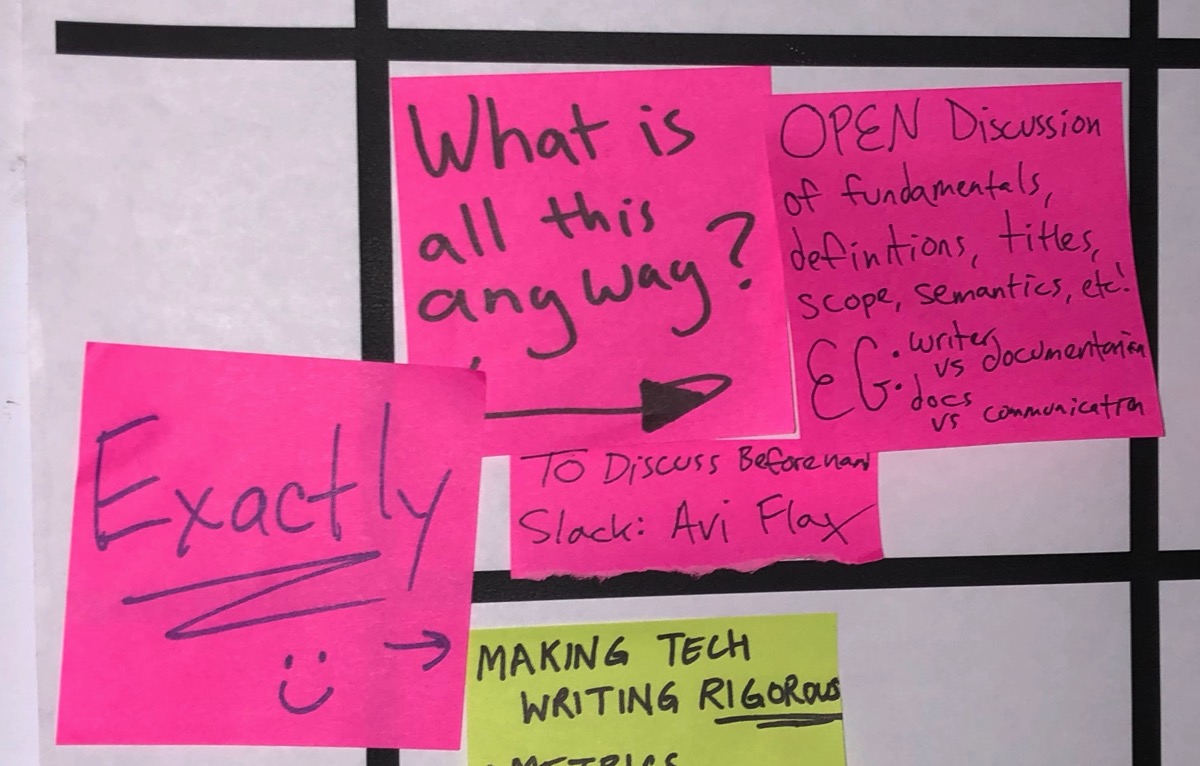 What is
all this
anyway?
OPEN Discussion
of fundamentals,
defintions, titles,
scope, semantics, etc!
EG: writer
vs documentarian
docs
vs communication
TO Discuss Beforehand
Slack: Avi Flax
Exactly
MAKING TECH
WRITING RIGOROUS
METRICS